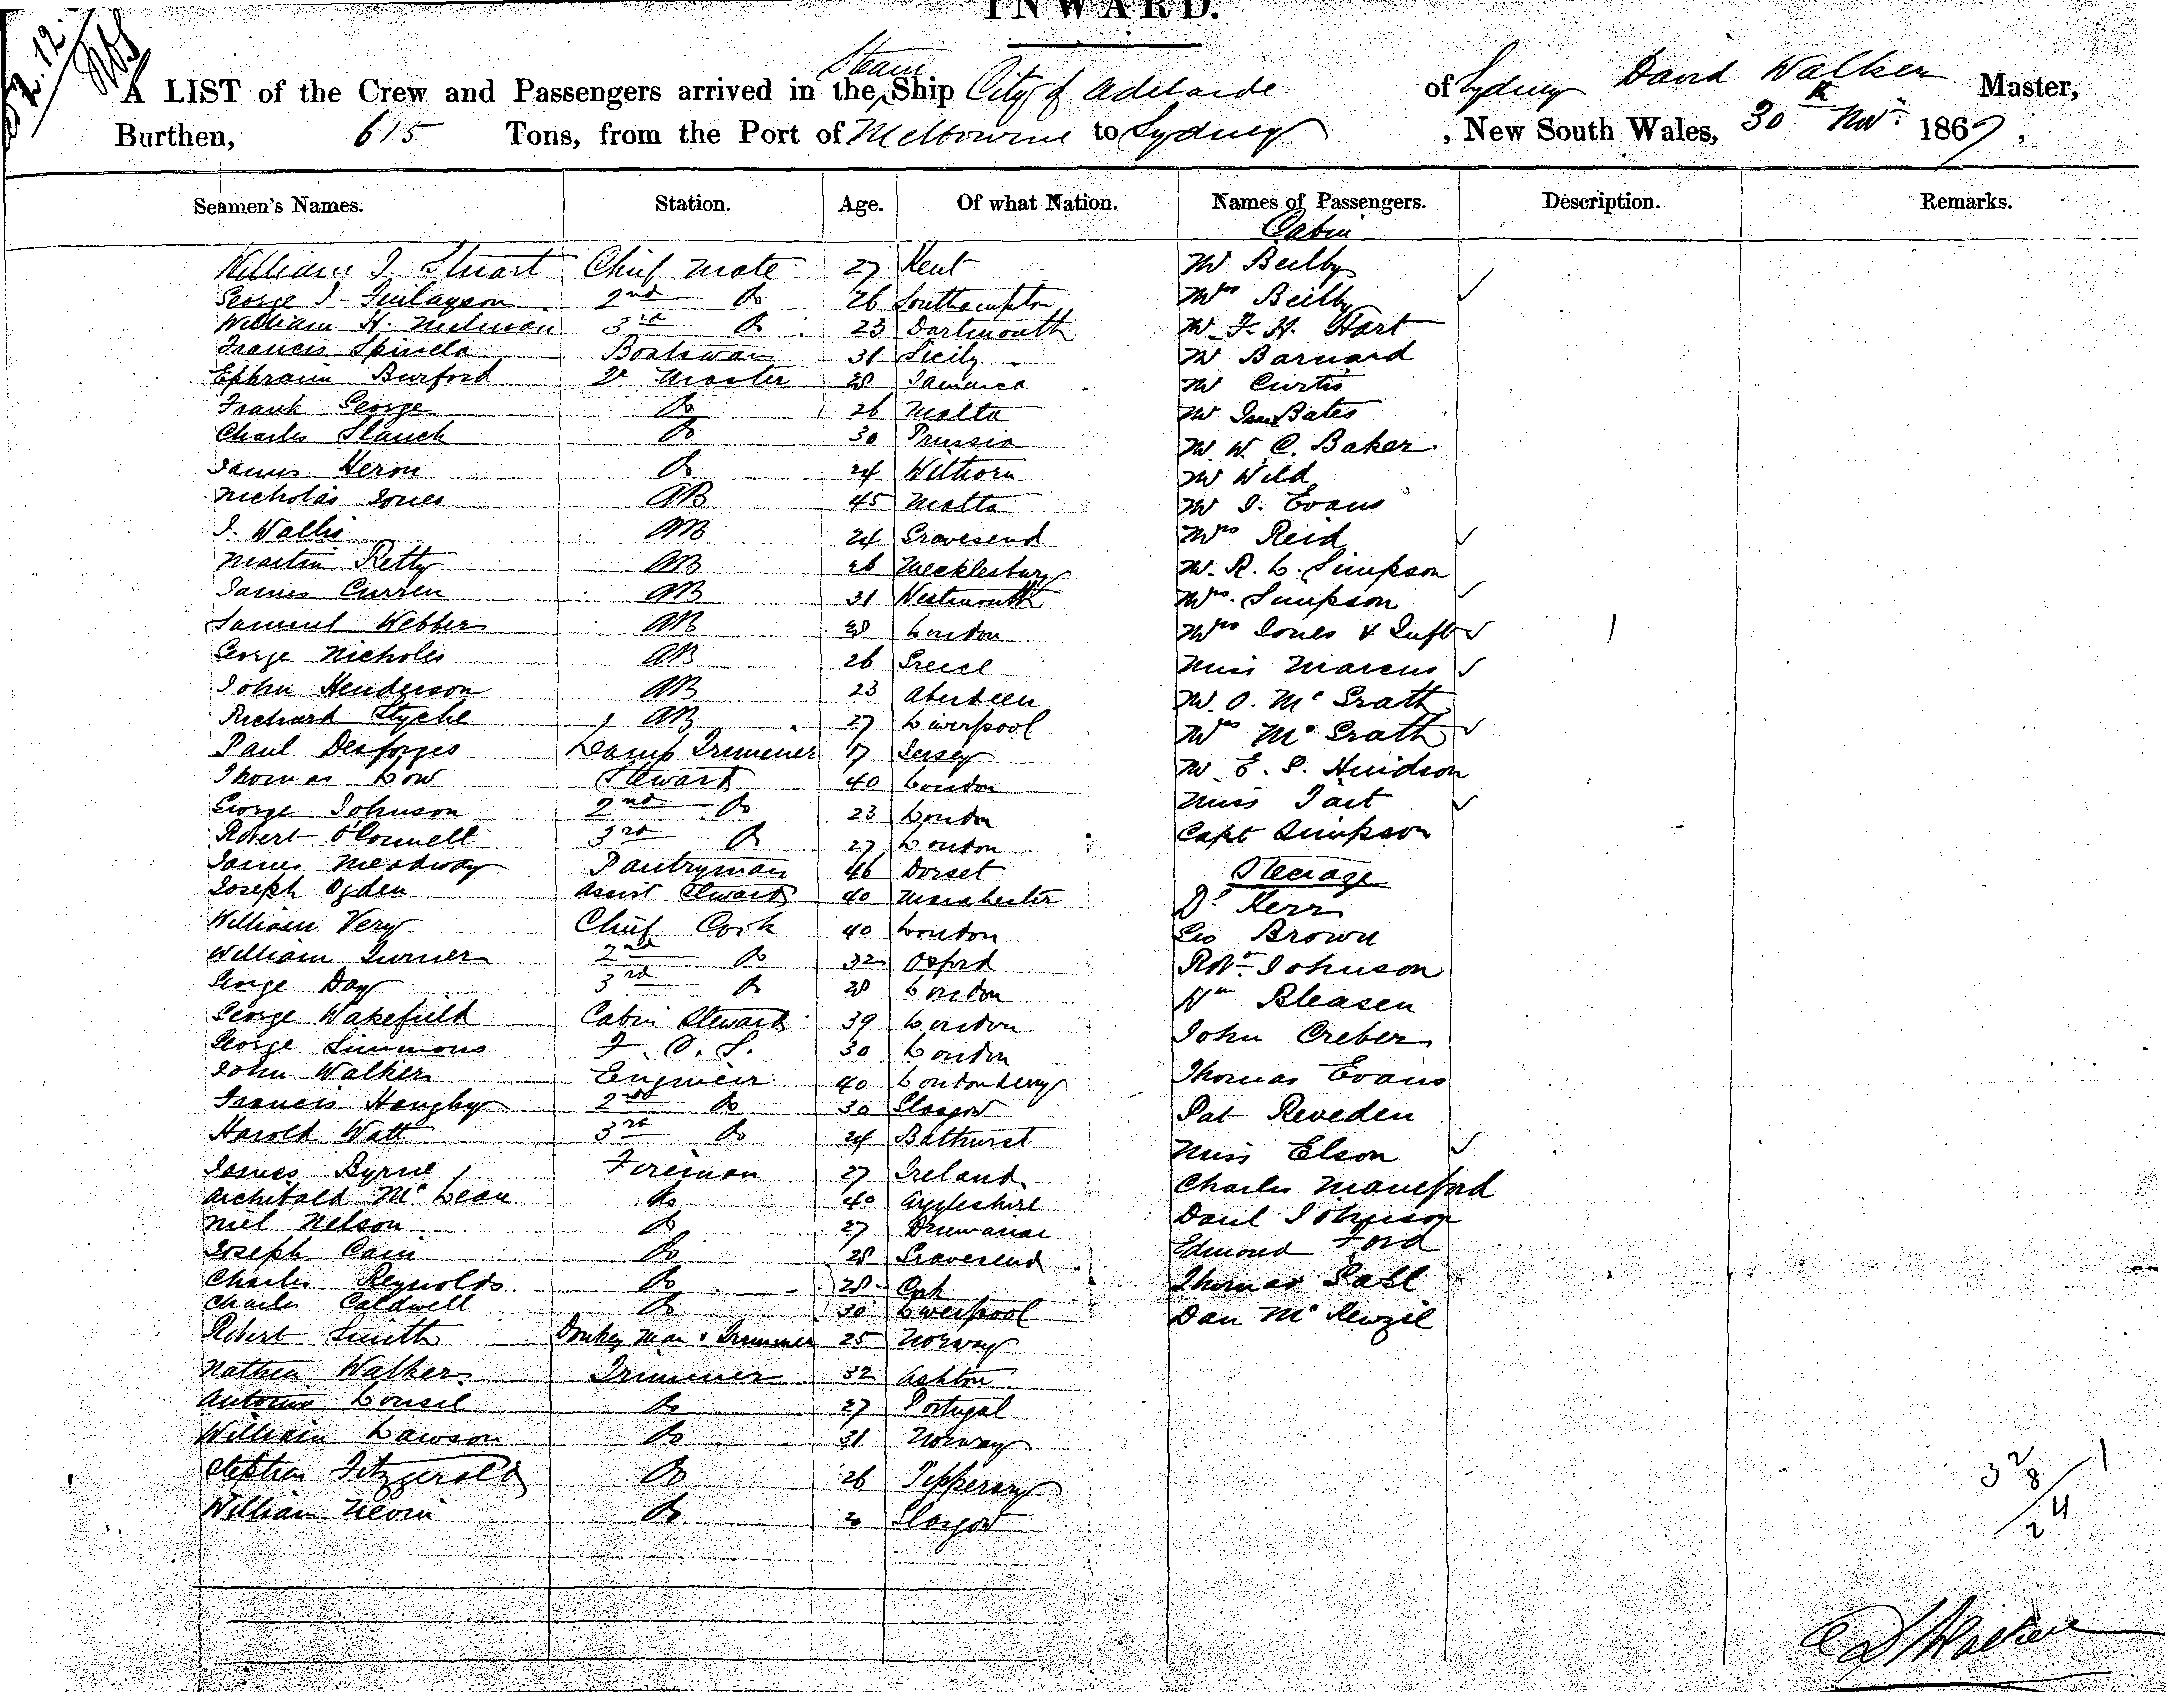 INWARD.
A LIST of the Crew and Passengers arrived in the Steam Ship City of Adelaide of Sydney David Walker Master,
Burthen, 615 Tons, from the Port of Melbourne to Sydney , New South Wales, 30th Novr 1867,
Seamen's Names. Station. Age. Of what Nation. Names of Passengers. Description. Remarks.
Cabin
William J. Stuart Chief Mate 27 Kent Mr Beilby
George J. Finlayson 2nd Do 26 Southampton Mrs Beilby
William H. 3rd Do 23 Dartmouth Mr F. H. Hart
Francis Spinela Boatswain 31 Sicily Mr Barnard
Ephraim Burford Master 28 Jamaica Mr Curtis
Frank George Do 26 Malta Mr Bates
Charles Do 30 Prussia Mr W. C. Baker
James Heron Do 24 Mr Wild
Nicholas Jones AB 45 Malta Mr J. Evans
J. Wallis AB 24 Gravesend Mrs Reid
Martin Retty AB 26 Mecklesburg Mr R. L. Simpson
James Curren AB 31 Mrs Simpson
Samuel Webber AB 28 London Mrs Jones & Inft
George Nicholes AB 26 Greece Miss Marcus
John Henderson AB 23 Aberdeen Mr O. McGrath
Richard Styche AB 27 Liverpool Mrs McGrath
Paul Desforges Lamp Trimmer 17 Jersey Mr E. S.
Thomas Low Steward 40 London Miss Tait
George Johnson 2nd Do 23 London Capt Simpson
Robert O'Connell 3rd Do 27 London
James Meadway Pantryman 46 Dorset Steerage
Joseph Ogden Assist Steward 40 Manchester Dd Kerr
William Very Chief Cook 40 London Geo Brown
William Turner 2nd Do 32 Oxford Robt Johnson
George Day 3rd Do 28 London Wm Bleasen
George Wakefield Cabin Steward 39 London John Creber
George Simmons F. C. S. 30 London
John Walker Engineer 40 Londonderry Thomas Evans
Francis Hengby 2nd Do 30 Glasgow Pat Reveden
Harold Watt 3rd Do 24 Bathurst Miss Elson
James Byrne Fireman 27 Ireland Charles
Archibald McLean Do 40 Argyleshire Danl Johnson
Niel Nelson Do 27 Edmond Ford
Joseph Cain Do 28 Gravesend
Charles Reynolds Do 28 Cork Thomas
Charles Caldwell Do 30 Liverpool Dan
Robert Smith Donkey Man & Trimmer 25 Norway
Nathen Walker Trimmer 32 Ashton
Antonio Do 27 Portugal
William Lawson Do 31 Norway
Stephen Fitzgerald Do 26 Tipperary
William Nevin Do Glasgow